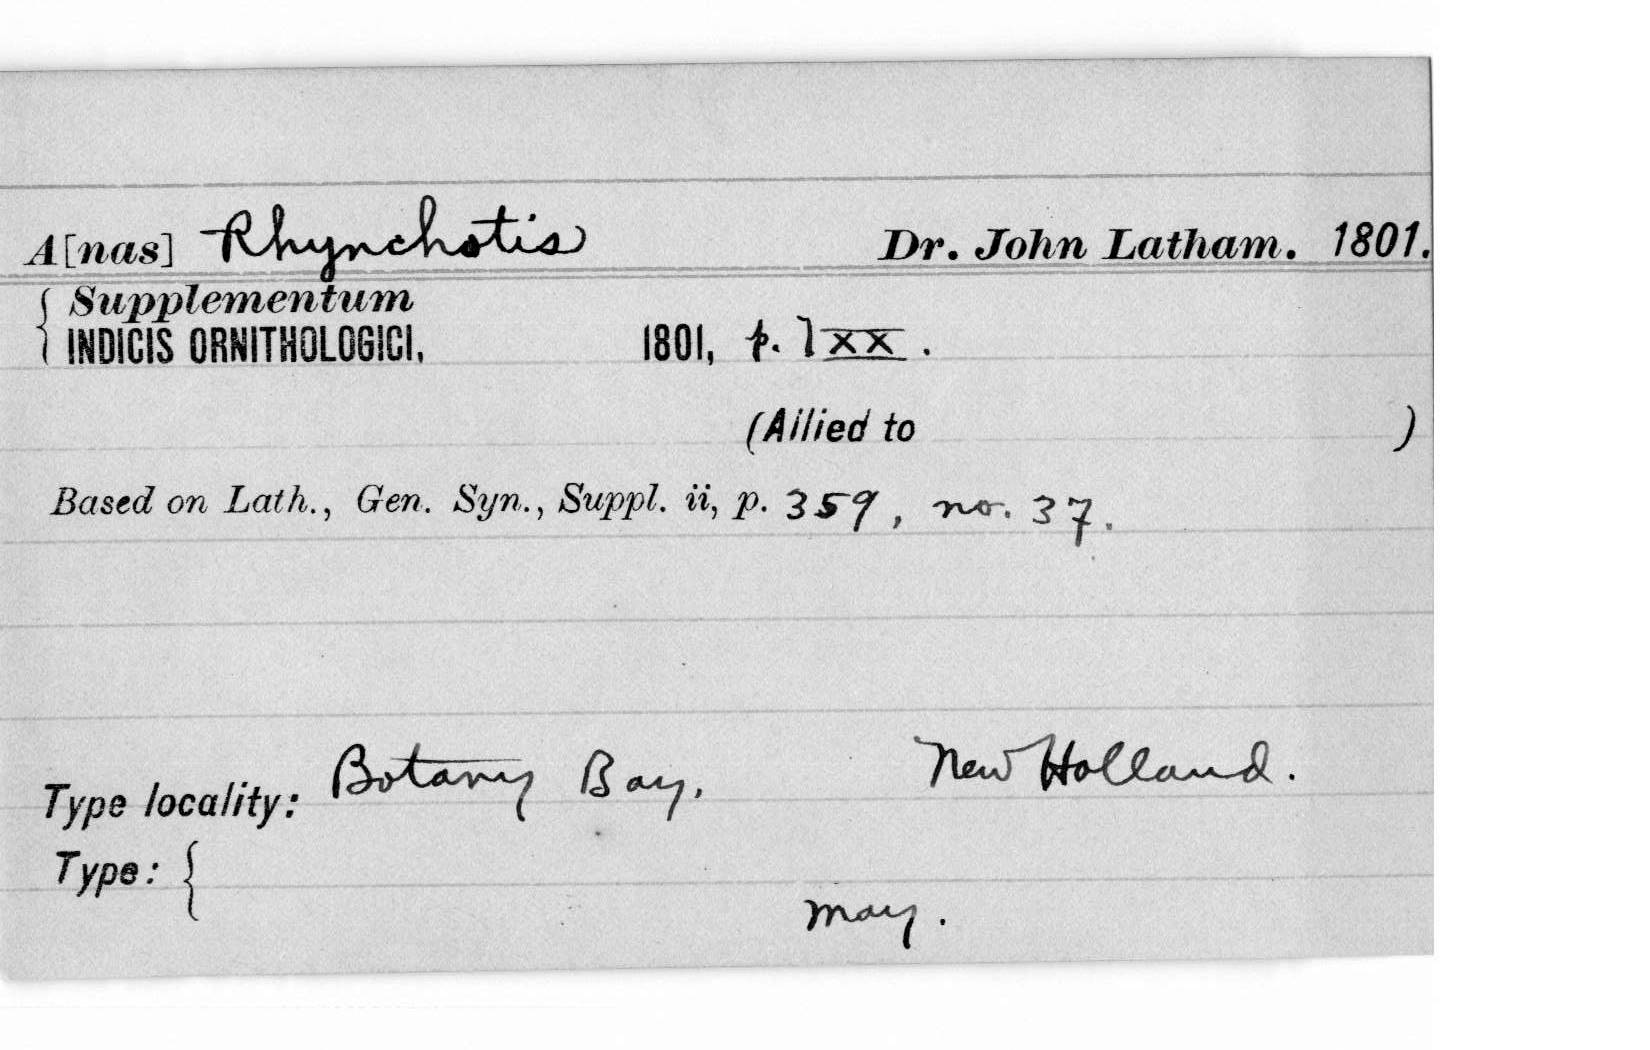 A[nas] Rhynchotis Dr. John Latham. 1801.
{ Supplementum
INDICIS ORNITHOLOGICI, 1801, p. lxx.
(Allied to )
Based on Lath., Gen. Syn., Suppl. ii, p. 359, no. 37.
Type locality: Botany Bay. New Holland.
Type: {
May.